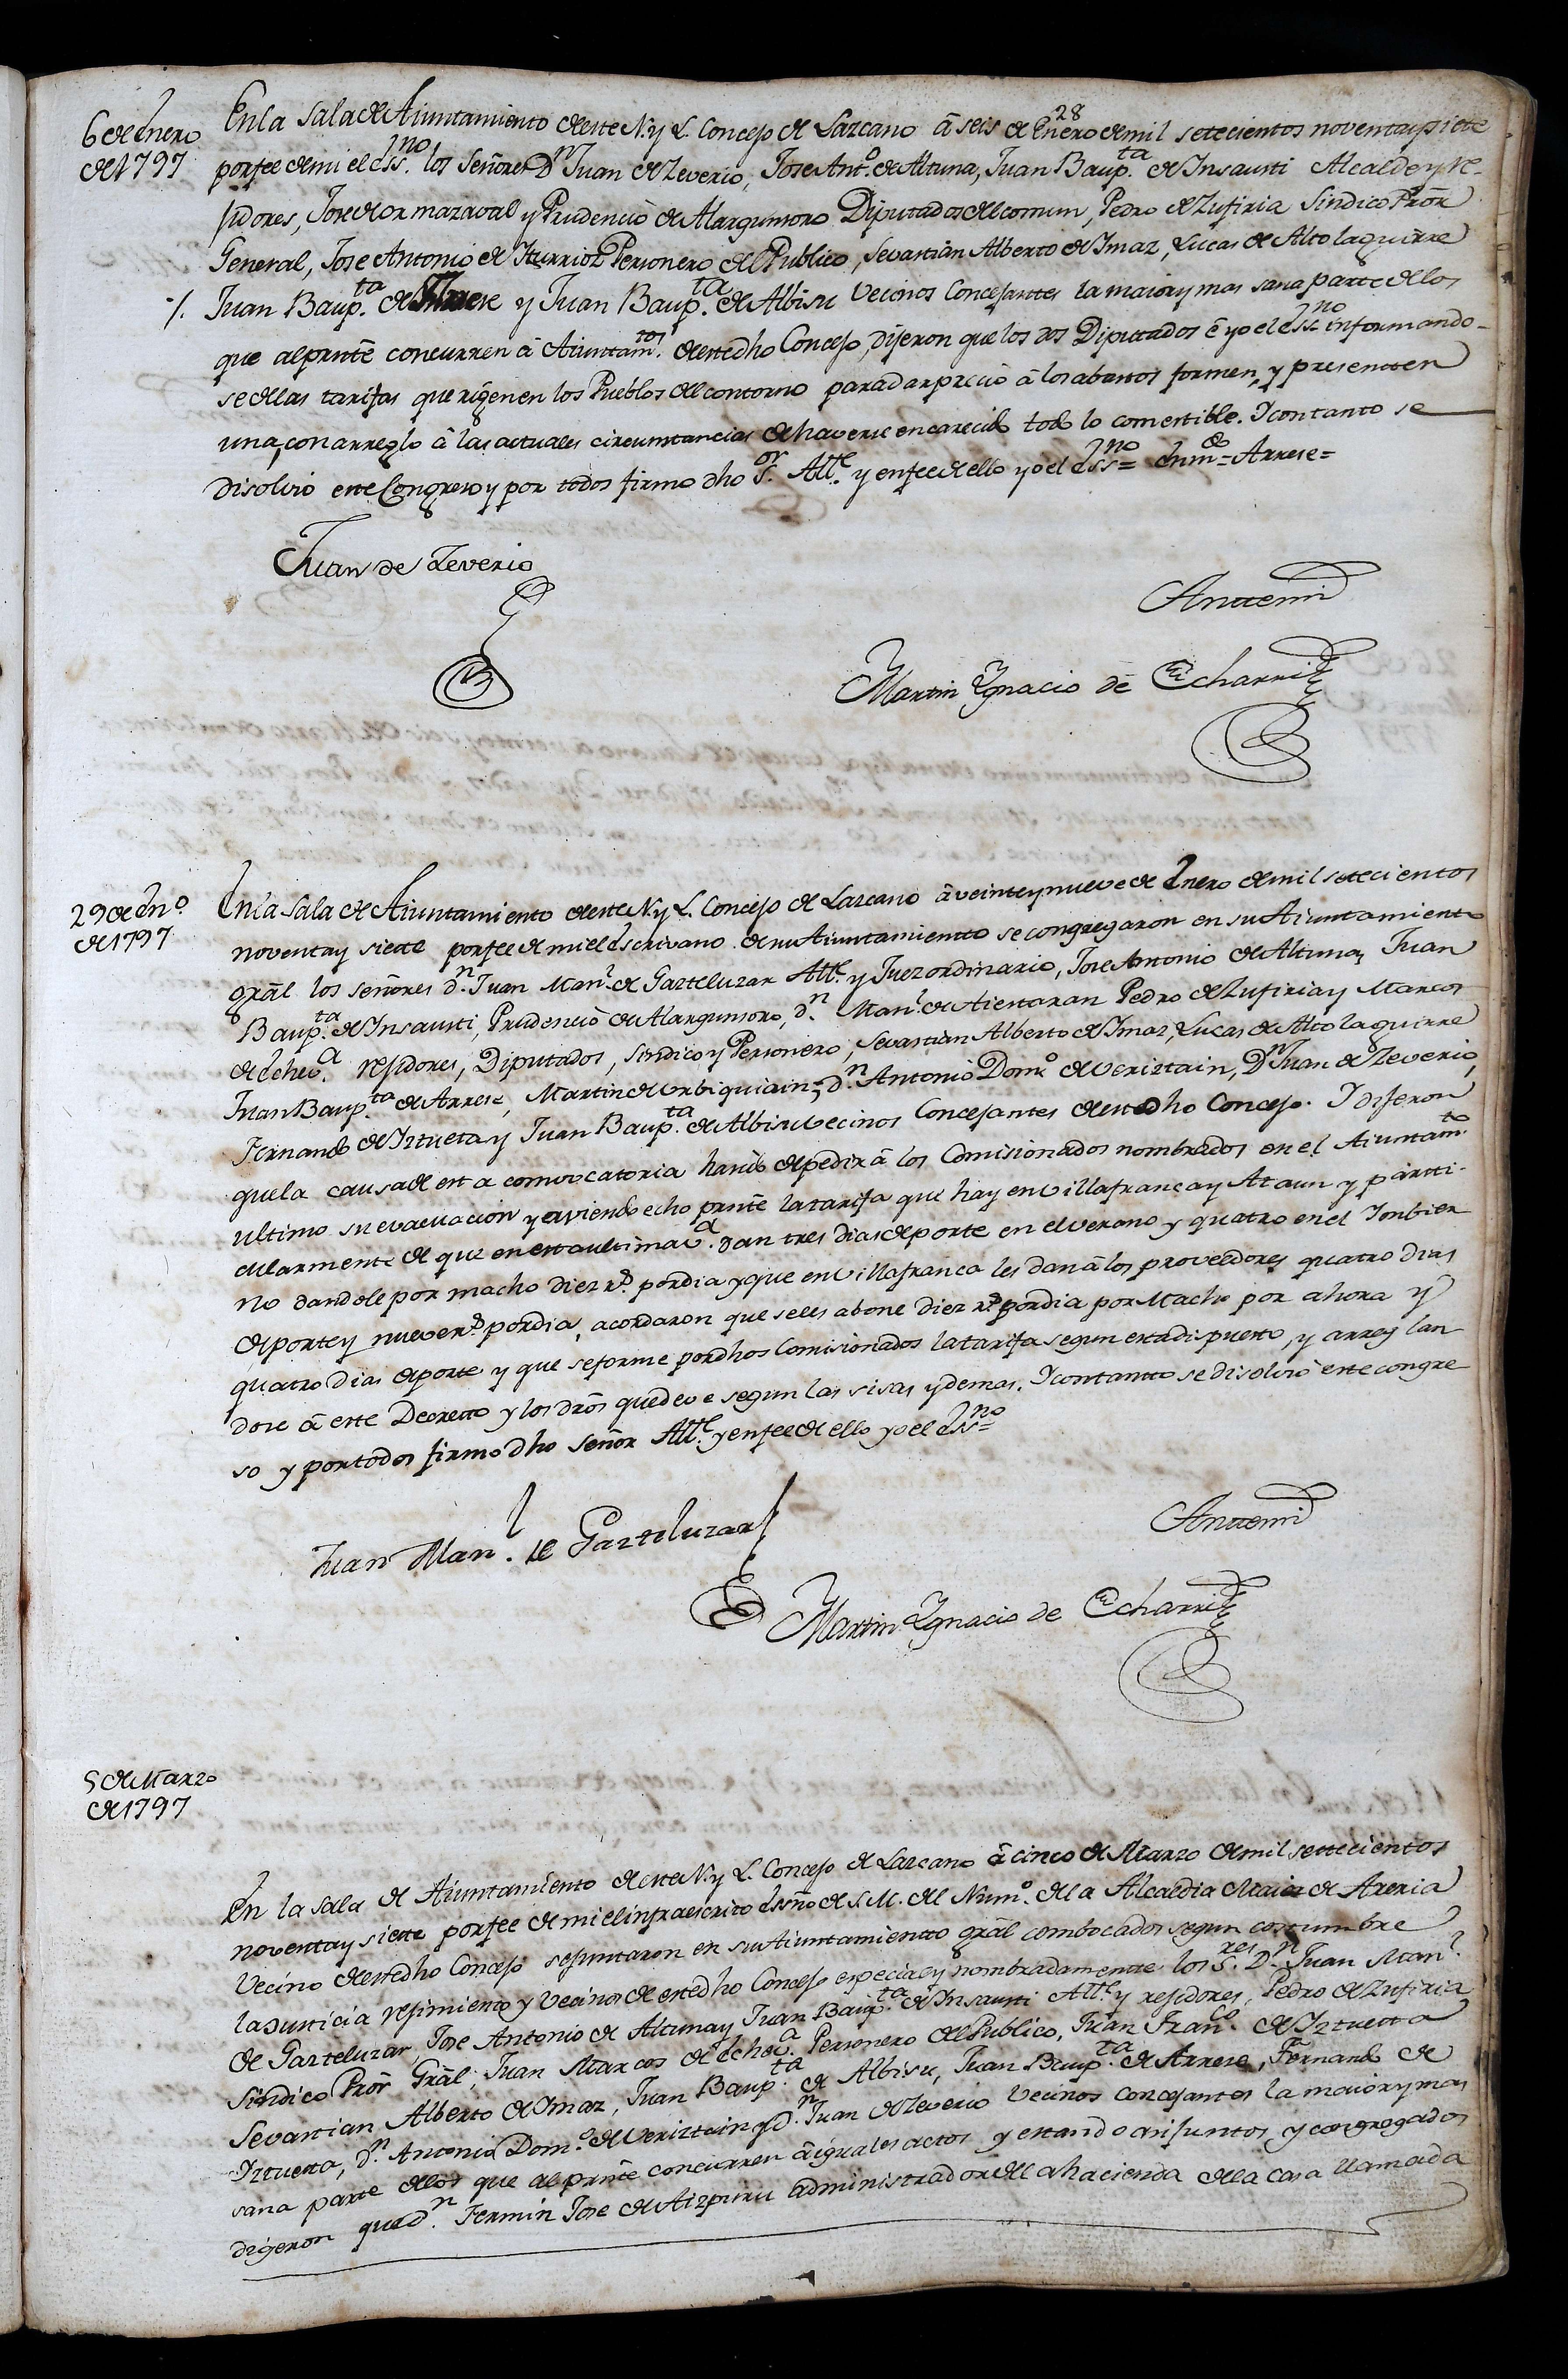 28
6 de Enero
de 1797
En la Sala de Aiuntamiento de este N. y L. Concejo de Lazcano â seis de Enero de mil setecientos noventa y siete
por fee de mi el Essno. los Señores Dn Juan de Zeverio, Jose Anto. de Altuna, Juan Baupta. de Insausti Alcalde y Re-
jidores, Jose de Ormazaval y Prudencio de Alargunsoro Diputados del comun, Pedro de Zufiria Sindico Prõr
General, Jose Antonio de Iturrioz Personero del Publico, Sevastian Alberto de Imaz, Lucas de Altolaguirre
./. Juan Baupta. de Arrese y Juan Baupta. de Albisu Vecinos Concejantes la maior y mas sana parte de los
que al prnte concurren â Aiuntamto. de este dho Concejo, dijeron que los dos Diputados ê yo el Essno informando-
se de las tarifas que rigen en los Pueblos del contorno para dar precio â los abastos formen, y presenten
una, con arreglo â las actuales circunstancias de haverse encarecido todo lo comestible. I con tanto se
disolvió este Congreso y por todos firmo dho Sor. Alle. y en fee de ello yo el Essno = Enmdo = Arrese =
Juan de Zeverio
Ante mi
Martin Ygnacio de Echarri
29 de Eno.
de 1797
En la Sala de Aiuntamiento de este N. y L. Concejo de Lazcano â veinte y nueve de Enero de mil setecientos
noventa y siete por fee de mi el Escrivano de su Aiuntamiento se congregaron en su Aiuntamiento
grãl los señores dn. Juan Manl. de Gazteluzar Alle. y Juez ordinario, Jose Antonio de Altuna, Juan
Baupta. de Insausti, Prudencio de Alargunsoro, dn. Manl. de Aiestaran Pedro de Zufiria y Marcos
de Echeva. rejidores, Diputados, Sindico y Personero, Sevastian Alberto de Imaz, Lucas de Altolaguirre
Juan Baupta. de Arrese, Martin de Urbiquiain, dn. Antonio Domo. de Veriztain, Dn Juan de Zeverio,
Fernando de Iztueta y Juan Baupta. de Albisu vecinos Concejantes de este dho Concejo. I dijeron
que la causa de esta comvocatoria ha sido de pedir â los Comisionados nombrados en el Aiuntamto.
ultimo su evacuacion y aviendo echo prnte la tarifa que hay en Villafranca y Ataun y parti-
cularmente de que en esta ultima Va. dan tres dias de porte en el verano y quatro en el Imbier
no dandole por macho diez rs. por dia y que en Villafranca les dan â los proveedores quatro dias
de porte y nueve rs. por dia, acordaron que se les abone diez rs. por dia por Macho por ahora y
quatro dias de porte y que se forme por dhos Comisionados la tarifa segun esta dispuesto, y arreglan
dose â este Decreto y los drõs que deve segun las sisas y demas. I con tanto se disolvió este congre
so y por todos firmo dho señor Alle. y en fee de ello yo el Essno =
Juan Manl. de Gazteluzar
Ante mi
Martin Ygnacio de Echarri
5 de Marzo
de 1797
En la Sala de Aiuntamiento de este N. y L. Concejo de Lazcano â cinco de Marzo de mil settecientos
noventa y siete por fee de mi el infraescrito Essño de S. M. del Numo. de la Alcaldia Maior de Areria
Vecino de este dho Concejo se juntaron en su Aiuntamiento grãl combocados segun costumbre
la Justicia rejimiento y vecinos de este dho Concejo especial y nombradamente los Sres. Dn. Juan Manl.
de Gazteluzar, Jose Antonio de Altuna y Juan Baupta. de Insausti Alle. y rejidores, Pedro de Zufiria
Sindico Prõr Grãl, Juan Marcos de Echeva. Personero del Publico, Juan Franco. de Iztueta
Sevastian Alberto de Imaz, Juan Baupta. de Albisu, Juan Baupta. de Arrese, Fernando de
Iztueta, dn. Antonio Domo. de Veriztain y dn. Juan de Zeverio Vecinos Concejantes la maior y mas
sana parte de los que al prnte concurren â iguales actos y estando asi juntos y congregados
digeron que dn. Fermin Jose de Aizpuru administrador de la hacienda de la casa llamada